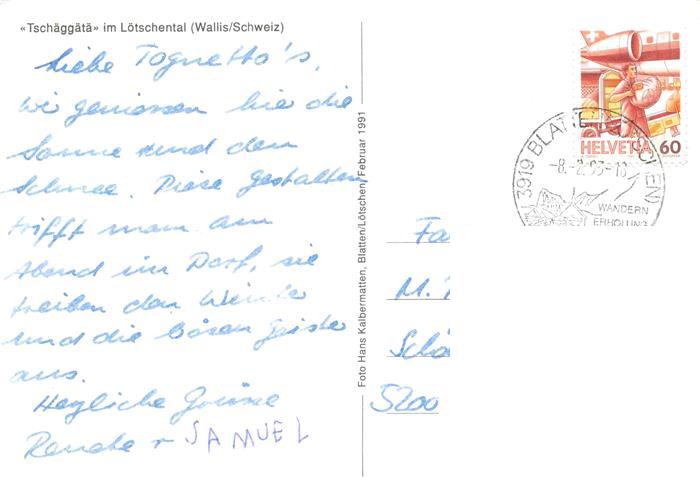 «Tschäggätä» im Lötschental (Wallis/Schweiz)
Liebe Tognetto's,
wir geniessen hie die
Sonne und den
Schnee. Diese Gestalten
trifft man am
Abend im Dorf, sie
treiben den Winter
und die bösen Geister
aus.
Herzliche Grüsse
Renate + SAMUEL
Foto Hans Kalbermatten, Blatten/Lötschen, Februar 1991
HELVETIA 60
3919 BLATTEN (LÖTSCHEN)
-8.-2.93-18
WANDERN
ERHOLUNG
Fa
M.
Schö
5200